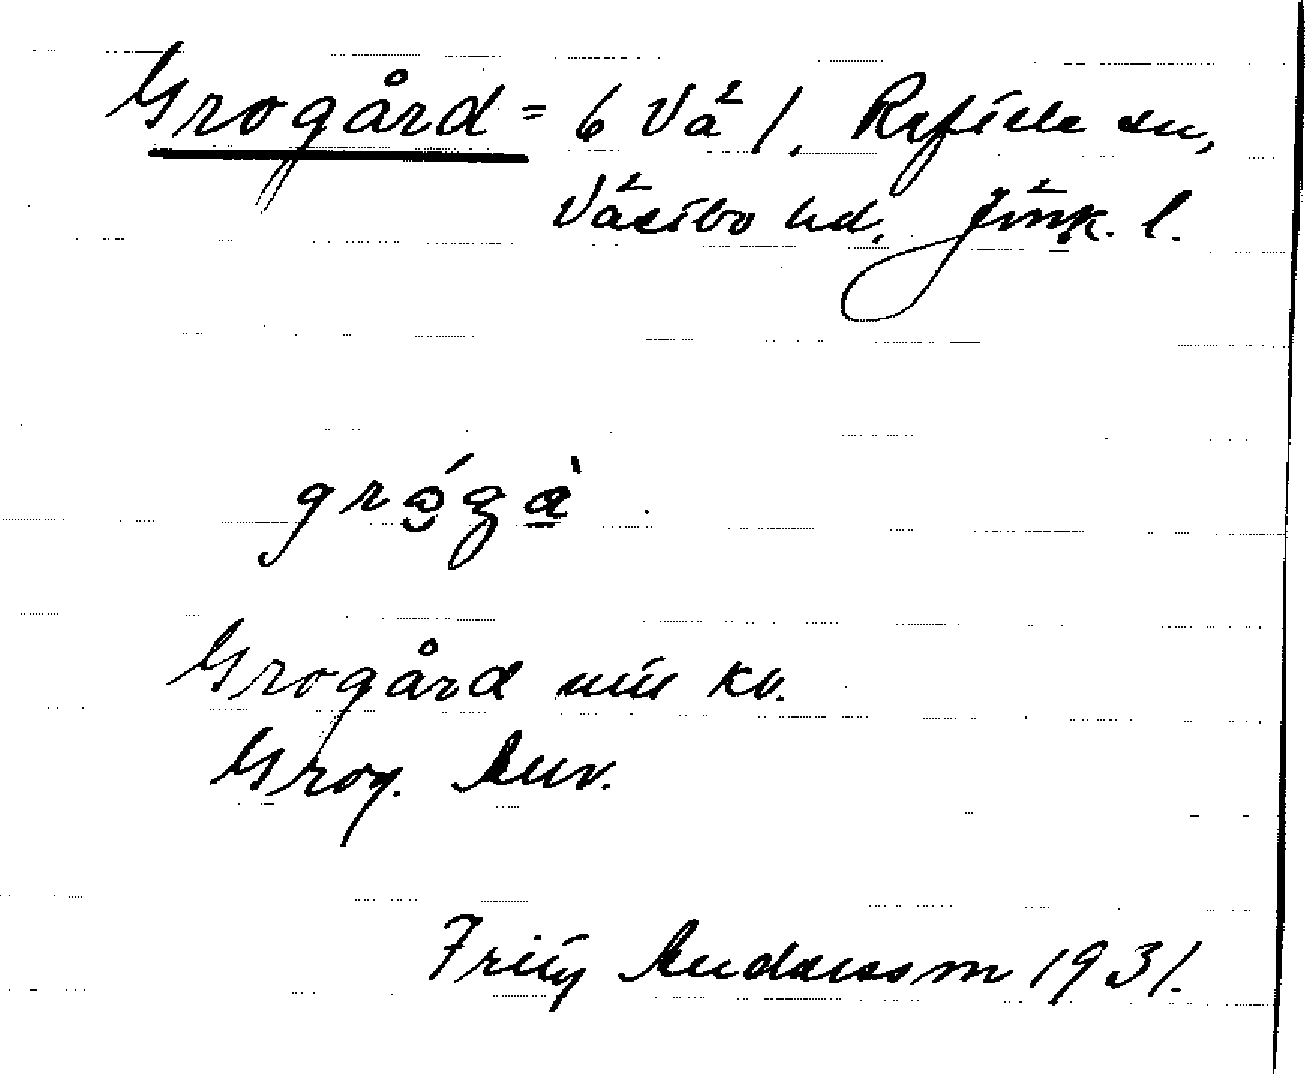 Grogård = 6 Vä /, Reftele sn,
Västbo hd, Jönk. l.
grógà
Grogård mtl kv.
Grog. Anv.
Fritz Andersson 1931.